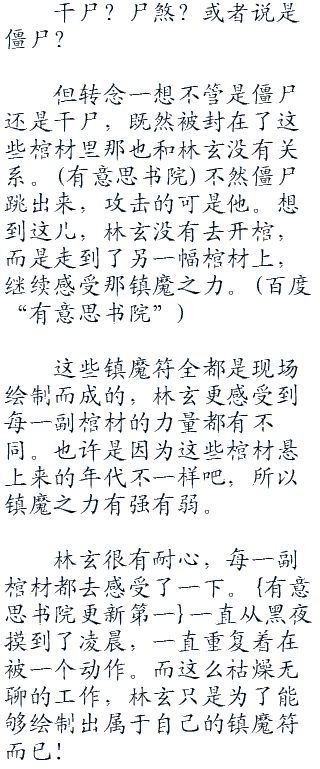 干尸？尸煞？或者说是
僵尸？
但转念一想不管是僵尸
还是干尸，既然被封在了这
些棺材里那也和林玄没有关
系。(有意思书院)不然僵尸
跳出来，攻击的可是他。想
到这儿，林玄没有去开棺，
而是走到了另一幅棺材上，
继续感受那镇魔之力。(百度
“有意思书院”)
这些镇魔符全都是现场
绘制而成的，林玄更感受到
每一副棺材的力量都有不
同。也许是因为这些棺材悬
上来的年代不一样吧，所以
镇魔之力有强有弱。
林玄很有耐心，每一副
棺材都去感受了一下。{有意
思书院更新第一}一直从黑夜
摸到了凌晨，一直重复着在
被一个动作。而这么枯燥无
聊的工作，林玄只是为了能
够绘制出属于自己的镇魔符
而已！